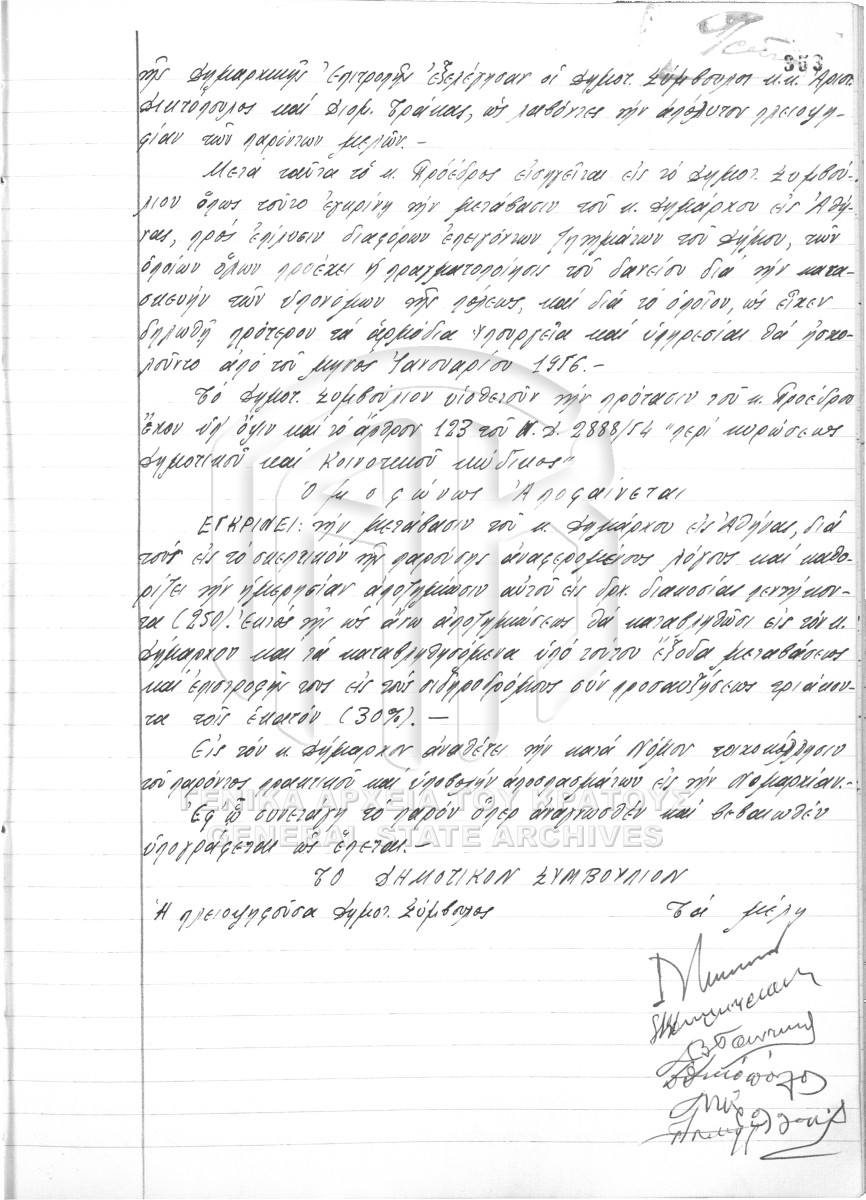 353
τῆς Δημαρχικῆς Ἐπιτροπῆς ἐξελέγησαν οἱ Δημοτ. Σύμβουλοι κ.κ. Ἀριστ.
Δικτόπουλος καί Διομ. Τράκας, ὡς λαβόντες τήν ἀπόλυτον πλειοψη-
φίαν τῶν παρόντων μελῶν.-
Μετά ταῦτα τό κ. Πρόεδρος εἰσηγεῖται εἰς τό Δημοτ. Συμβού-
λιον ὅπως τοῦτο ἐγκρίνῃ τήν μετάβασιν τοῦ κ. Δημάρχου εἰς Ἀθή-
νας, πρός ἐπίλυσιν διαφόρων ἐπειγόντων ζητημάτων τοῦ Δήμου, τῶν
ὁποίων ὅλων προέχει ἡ πραγματοποίησις τοῦ δανείου διά τήν κατα-
σκευήν τῶν ὑπονόμων τῆς πόλεως, καί διά τό ὁποῖον, ὡς εἶχεν
δηλωθῆ πρότερον τά ἁρμόδια Ὑπουργεῖα καί ὑπηρεσίαι θά ἠσχο-
λοῦντο ἀπό τοῦ μηνός Ἰανουαρίου 1956.-
Τό Δημοτ. Συμβούλιον υἱοθετοῦν τήν πρότασιν τοῦ κ. Προέδρου
ἔχον ὑπ' ὄψιν καί τό ἄρθρον 123 τοῦ Ν.Δ. 2888/54 "περί κυρώσεως
Δημοτικοῦ καί Κοινοτικοῦ κώδικος"
Ὁμοφώνως Ἀποφαίνεται
ΕΓΚΡΙΝΕΙ: τήν μετάβασιν τοῦ κ. Δημάρχου εἰς Ἀθήνας, διά
τούς εἰς τό σκεπτικόν τῆς παρούσης ἀναφερομένους λόγους καί καθο-
ρίζει τήν ἡμερησίαν ἀποζημίωσιν αὐτοῦ εἰς δρχ. διακοσίας πεντήκον-
τα (250). Ἐκτός τῆς ὡς ἄνω ἀποζημιώσεως θά καταβληθῶσι εἰς τόν κ.
Δήμαρχον καί τά καταβληθησόμενα ὑπό τούτου ἔξοδα μεταβάσεως
καί ἐπιστροφῆς τους εἰς τούς σιδηροδρόμους σύν προσαυξήσεως τριάκον-
τα τοῖς ἑκατόν (30%).-
Εἰς τόν κ. Δήμαρχον ἀναθέτει τήν κατά Νόμον τοιχοκόλλησιν
τοῦ παρόντος πρακτικοῦ καί ὑποβολήν ἀποσπασμάτων εἰς τήν Νομαρχίαν.-
Ἐφ' ᾧ συνετάγη τό παρόν ὅπερ ἀναγνωσθέν καί βεβαιωθέν
ὑπογράφεται ὡς ἕπεται.-
ΤΟ ΔΗΜΟΤΙΚΟΝ ΣΥΜΒΟΥΛΙΟΝ
Ἡ πλειοψηφοῦσα Δημοτ. Σύμβουλος Τά μέλη
ΓΕΝΙΚΑ ΑΡΧΕΙΑ ΤΟΥ ΚΡΑΤΟΥΣ
GENERAL STATE ARCHIVES